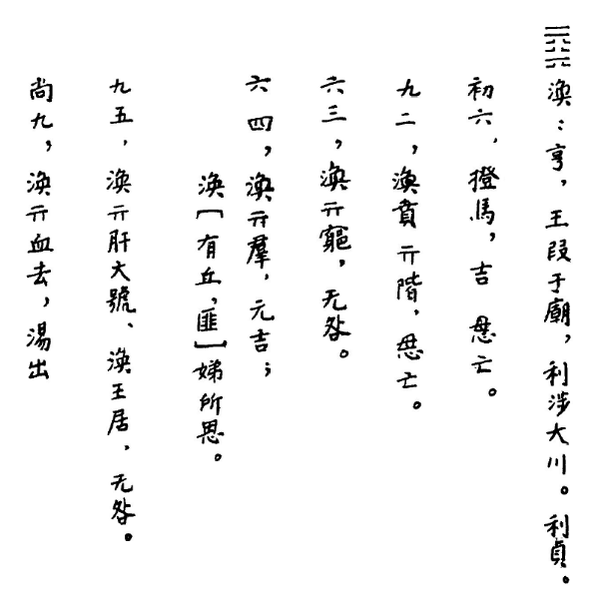 ䷺渙：亨，王叚于廟，利涉大川。利貞。
初六，撜馬，吉 亡。
九二，渙賁亓階，亡。
六三，渙亓，无咎。
六四，渙亓羣，元吉；
渙[有丘，匪]娣所思。
九五，渙亓肝大號、渙王居，无咎。
尚九，渙亓血去，湯出